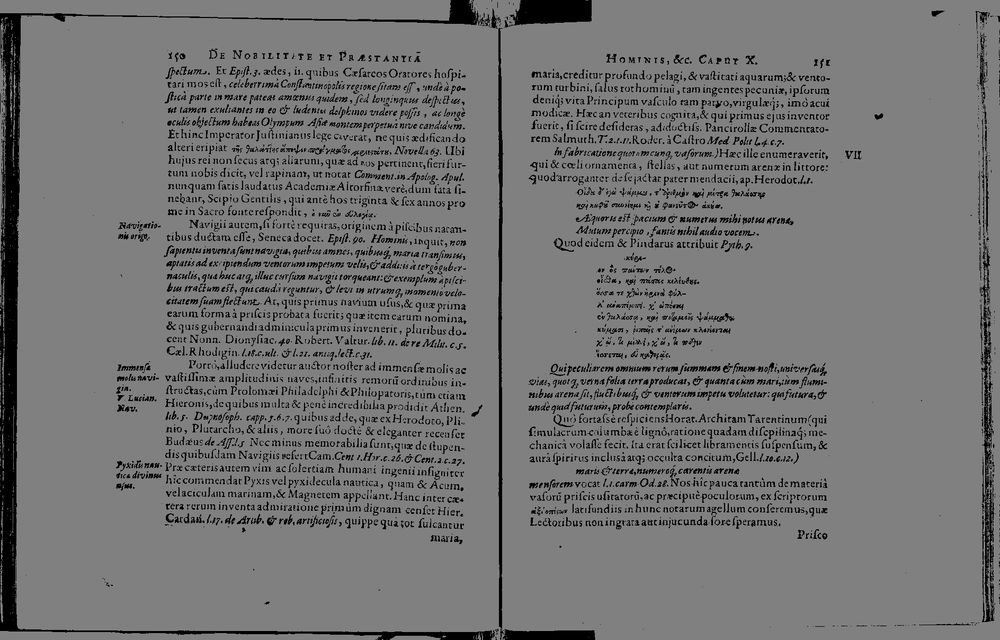 150 DE NOBILITATE ET PRÆSTANTIÂ
spectum. Et Epist. 3. ædes, ii. quibus Cæsareos Oratores hospi-
tari mos est, celeberrimâ Constantinopolis regione sitam esse, unde à po-
sticâ parte in mare pateat amœnus quidem, sed longinquus despectus,
ut tamen exultantes in eo & ludentes delphinos videre possis, ac longè
oculis objectum habeas Olympum Asiæ montem perpetuâ nive candidum.
Et hinc Imperator Justinianus lege civerat, ne quis ædificando
alteri eripiat Novella 63. Ubi
hujus rei non secus atq; aliarum, quæ ad nos pertinent, fieri fur-
tum nobis dicit, vel rapinam, ut notat Comment. in Apolog. Apul.
nunquam satis laudatus Academiæ Altorfinæ verè, dum fata si-
nebant, Scipio Gentilis, qui ante hos triginta & sex annos pro
me in Sacro fonte respondit,
Navigatio-
nis origo.
Navigii autem, si fortè requiras, originem à piscibus natan-
tibus ductam esse, Seneca docet. Epist. 90. Hominis, inquit, non
sapientis inventa sunt navigia, quibus amnes, quibusq; maria transimus,
aptatis ad excipiendum ventorum impetum velis, & additis à tergo guber-
naculis, quæ huc atq; illuc cursum navigii torqueant: & exemplum à pisci-
bus tractum est, qui caudâ reguntur, & levi in utrumq; momento velo-
citatem suam flectunt. At, quis primus navium usus, & quæ prima
earum forma à priscis probata fuerit; quæ item earum nomina,
& quis gubernandi adminicula primus invenerit, pluribus do-
cent Nonn. Dionysiac. 40. Robert. Valtur. lib. 11. de re Milit. c. 5.
Cæl. Rhodigin. l. 18. c. ult. & l. 21. antiq. lect. c. 31.
Immensâ
molis navi-
gia.
V Lucian.
Nav.
Porrò, alludere videtur auctor noster ad immensæ molis ac
vastissimæ amplitudinis naves, infinitis remorū ordinibus in-
structas, cùm Ptolomæi Philadelphi & Philopatoris, tùm etiam
Hieronis, de quibus multa & penè incredibilia prodidit Athen.
lib. 5. Dipnosoph. capp. 5. 6. 7. quibus adde, quæ ex Herodoto, Pli-
nio, Plutarcho, & aliis, more suo doctè & eleganter recenset
Budæus de Asse l. 5 Nec minus memorabilia sunt, quæ de stupen-
dis quibusdam Navigiis refert Cam. Cent 1. Hor. c. 26. & Cent. 2. c. 27.
Pyxidis nau-
ticæ divinus
usus.
Præ cæteris autem vim ac solertiam humani ingenii insigniter
hic commendat Pyxis vel pyxidecula nautica, quam & Acum,
vel aciculam marinam, & Magnetem appellant. Hanc inter cæ-
tera rerum inventa admiratione primùm dignam censet Hier.
Cardan. l. 17. de Artib. & reb. artificiosis, quippe quâ tot sulcantur
maria,
HOMINIS, &c. CAPUT X. 151
maria, creditur profundo pelagi, & vastitati aquarum; & vento-
rum turbini, salus tot hominū, tam ingentes pecuniæ, ipsorum
deniq; vita Principum vasculo tam parvo, virgulæq;, imò acui
modicæ. Hæc an veteribus cognita, & qui primus ejus inventor
fuerit, si scire desideras, adi doctiss. Pancirollæ Commentato-
rem Salmuth, T. 2. t. 11. Roder. à Castro Med Polit l. 4. c. 7.
In fabricatione quorumcunq; vasorum.) Hæc ille enumeraverit, VII
qui & cœli ornamenta, stellas, aut numerum arenæ in littore:
quod arroganter de se jactat pater mendacii, ap. Herodot. l. 1.
Æquoris est spacium & numerus mihi notus arenæ,
Mutum percipio, fantis nihil audio vocem.
Quod eidem & Pindarus attribuit Pyth. 9.
Qui peculiarem omnium rerum summam & finem nosti, universasq;
vias, quotq; verna folia terra producat, & quanta cùm mari, tùm flumi-
nibus arena sit, fluctibusq; & ventorum impetu volutetur: qui futura, &
unde quid futurum, probe contemplaris.
Quò fortasse respiciens Horat. Architam Tarentinum (qui
simulacrum columbæ è lignō, ratione quadam disciplinaq; me-
chanicâ volasse fecit. Ita erat scilicet libramentis suspensum, &
aurâ spiritus inclusâ atq; occulta concitum, Gell. l. 10. c. 12.)
maris & terræ, numeroq; carentis arenæ
mensorem vocat l. 1. carm Od. 28. Nos hic pauca tantùm de materiâ
vasorū priscis usitatorū, ac præcipuè poculorum, ex scriptorum
latifundiis in hunc notarum agellum conferemus, quæ
Lectoribus non ingrata aut injucunda fore speramus.
Prisco